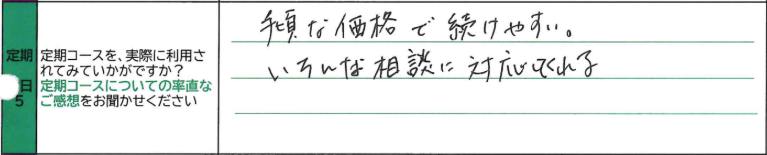 定期
日
5
定期コースを、実際に利用さ
れてみていかがですか?
定期コースについての率直な
ご感想をお聞かせください
手頃な価格で続けやすい。
いろんな相談に対応してくれる